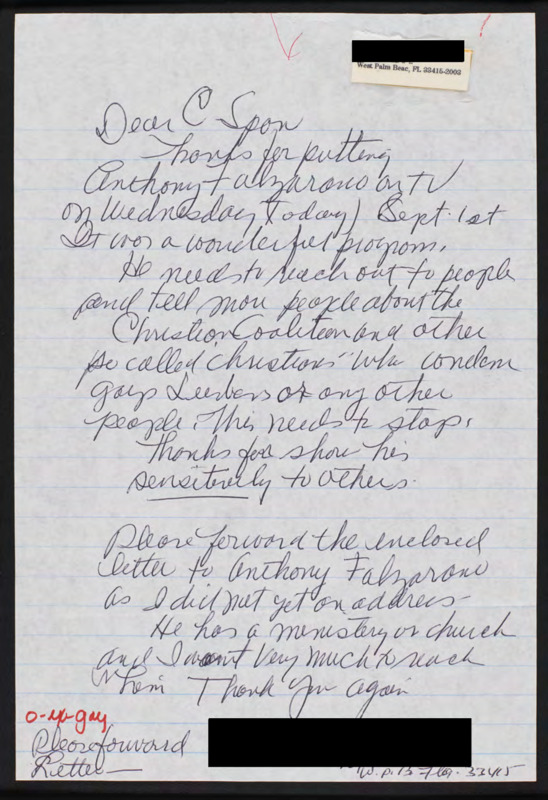 West Palm Beac, FL 33415-2002
Dear C Span
Thanks for putting
Anthony Falzarano on TV
on Wednesday (Today) Sept. 1st
It was a wonderful program.
He needs to reach out to people
and tell more people about the
Christian Coalition and other
so called "christians" who condem
gays Lesbens or any other
people. This needs to stop.
Thanks for show his
sensiterely to others.
Please forward the enclosed
letter to Anthony Falzarano
as I did not get an address
He has a menistery or church
and I want Very much to reach
him Thank You again
o-ex-gay
Please forward
Letter
W.P.B. Fla. 33415